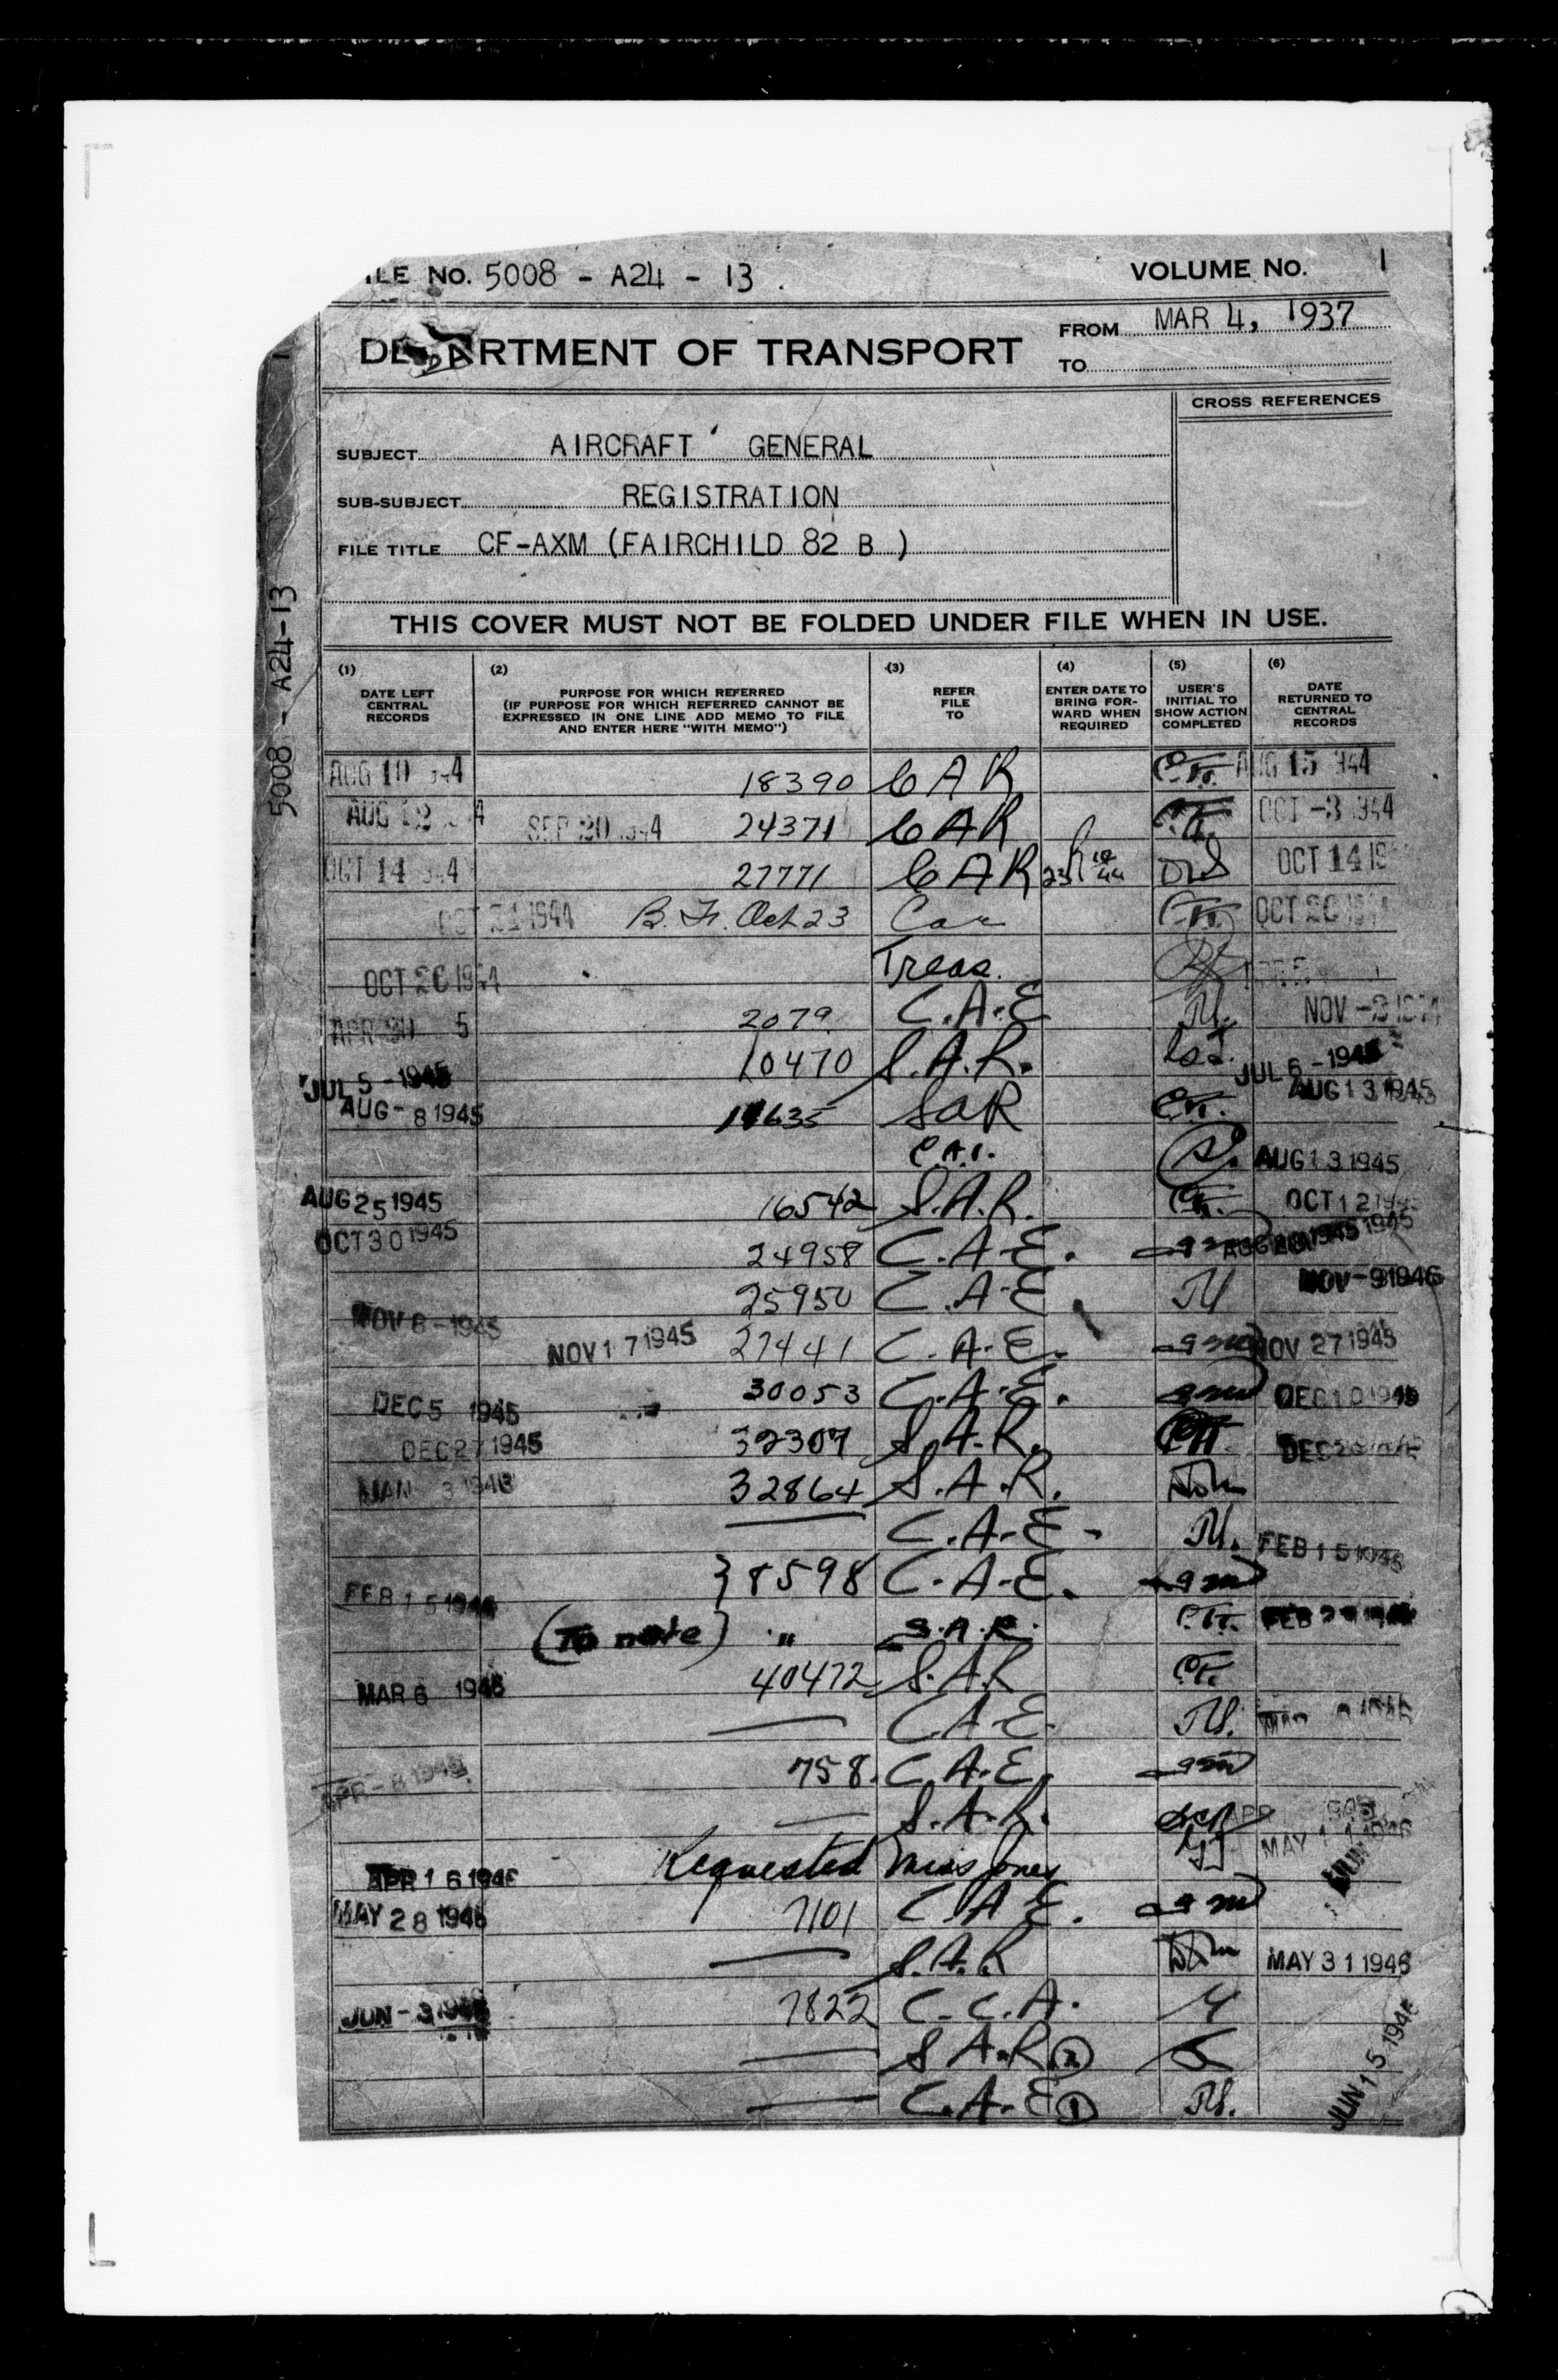 ILE No. 5008 - A24 - 13 .
VOLUME No. 1
DEPARTMENT OF TRANSPORT
FROM MAR 4, 1937
TO
CROSS REFERENCES
SUBJECT AIRCRAFT GENERAL
SUB-SUBJECT REGISTRATION
FILE TITLE CF-AXM (FAIRCHILD 82 B )
5008 - A24-13
THIS COVER MUST NOT BE FOLDED UNDER FILE WHEN IN USE.
(1) DATE LEFT CENTRAL RECORDS
(2) PURPOSE FOR WHICH REFERRED (IF PURPOSE FOR WHICH REFERRED CANNOT BE EXPRESSED IN ONE LINE ADD MEMO TO FILE AND ENTER HERE "WITH MEMO")
(3) REFER FILE TO
(4) ENTER DATE TO BRING FORWARD WHEN REQUIRED
(5) USER'S INITIAL TO SHOW ACTION COMPLETED
(6) DATE RETURNED TO CENTRAL RECORDS
AUG 10 44 18390 CAR AUG 15 944
AUG SEP 20 1944 24371 CAR OCT -3 1944
OCT 14 944 27771 CAR OCT 14 19
1944 B.F. Oct 23 Car OCT 20 1944
OCT 20 1944 Treas.
APR 5 2079 C.A.E NOV
JUL 5 - 1945 10470 S.A.R. JUL 6 - 1945
AUG - 8 1945 635 SAR AUG 13 1945
C.A.I. AUG 13 1945
AUG 25 1945 16542 S.A.R. OCT 12 1945
OCT 30 1945 24958 C.A.E. 1945
NOV 8 - 1945 25950 C.A.E NOV - 9 1946
NOV 17 1945 27441 C.A.E. NOV 27 1945
DEC 5 1945 30053 C.A.E. DEC 10 1945
DEC 27 1945 32307 S.A.R. DEC
JAN 3 1946 32864 S.A.R.
C.A.E - FEB 15 1946
FEB 15 1946 38598 C.A.E.
(To note) " S.A.R. FEB
MAR 6 1946 40472 S.A.R
C.A.E.
APR - 8 1946 758. C.A.E.
S.A.R. APR
MAY 1 1 1946
APR 16 1946 Requested Miss Jones
MAY 28 1946 7101 C.A.E.
S.A.R MAY 31 1946
JUN - 3 1946 7822 C.C.A.
S.A.R (2)
C.A.E (1) JUN 15 1946